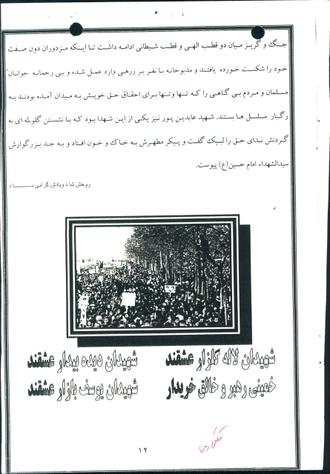 جنگ و گریز میان دو قطب الهی و قطب شیطانی ادامه داشت تا اینکه مزدوران دون صفت
خود را شکست خورده یافتند و مذبوحانه با نفر بر زرهی وارد عمل شده و بی رحمانه جوانان
مسلمان و مردم بی گناهی را که تنها و تنها برای احقاق حق خویش به میدان آمده بودند به
رگبار مسلسل ها بستند. شهید عابدین پور نیز یکی از این شهدا بود که با نشستن گلوله ای به
گردنش ندای حق را لبیک گفت و پیکر مطهرش به خاک و خون افتاد و به جد بزرگوارش
سیدالشهداء امام حسین(ع) پیوست.
روحش شاد و یادش گرامی باد
شهیدان لاله گلزار عشقند شهیدان دیده بیدار عشقند
خمینی رهبر و خالق خریدار شهیدان یوسف بازار عشقند
۱۲